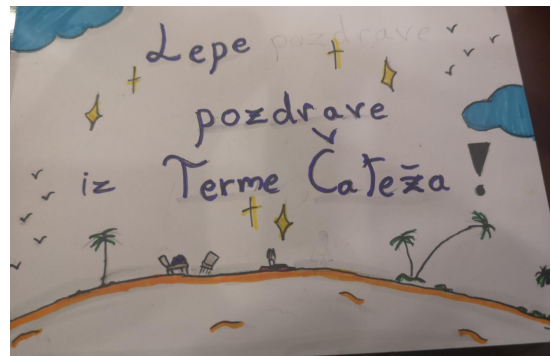 Lepe pozdrave
pozdrave
iz Terme Čateža !